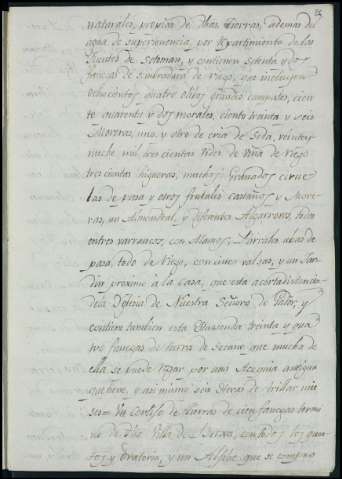 naturales, propias de dhas tierras, ademas del
agua de supervenencia, por repartimiento de las
fuentes de y contienen setenta y dos
fanegas de sembradura de riego, esa incluyen
ochocientos quatro olivos grandes campales, cien
to cuarenta y dos morales, ciento treinta y seis
Moreras, uno y otro de cria de Seda, veinte y
nueve mil tres cientas vides de viña de riego
tres cientas higueras, muchos Granados cirue
las de pasa y otros frutales castaños y More
ras, un Almendral, y diferentes Algarrovos, todo
entre varrancos, con Alamos, Parrales ubas de
pasa, todo de Riego, con unas valsas, y un Jar
din proximo à la casa, que esta à corta distancia
dela Yglesia de Nuestra Señora de y
contiene tambien esta Hacienda treinta y qua
tro fanegas de tierra de Secano que mucha de
ella se puede regar por una Acequia antigua
que tiene, y asi mismo seis Heras de trillar mie
ses = Un Cortijo de tierras de cien fanegas termi
no de dha Villa de con todos los quar
tos y Oratorio, y un Algibe que se compuso